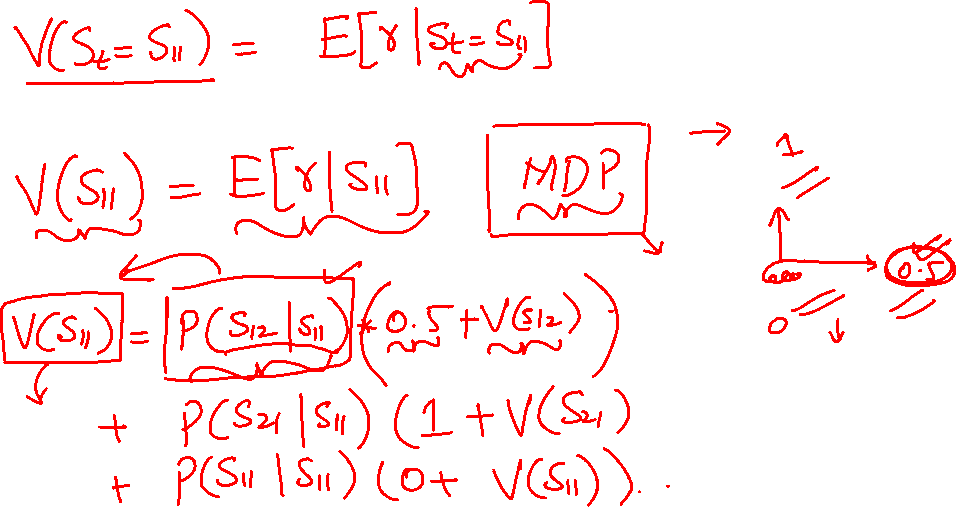 V(St = S11) = E[r | St = S11]
V(S11) = E[r | S11]
MDP
1
0.5
0
V(S11) = P(S12 | S11) * (0.5 + V(S12))
+ P(S21 | S11) (1 + V(S21)
+ P(S11 | S11) (0 + V(S11)). .